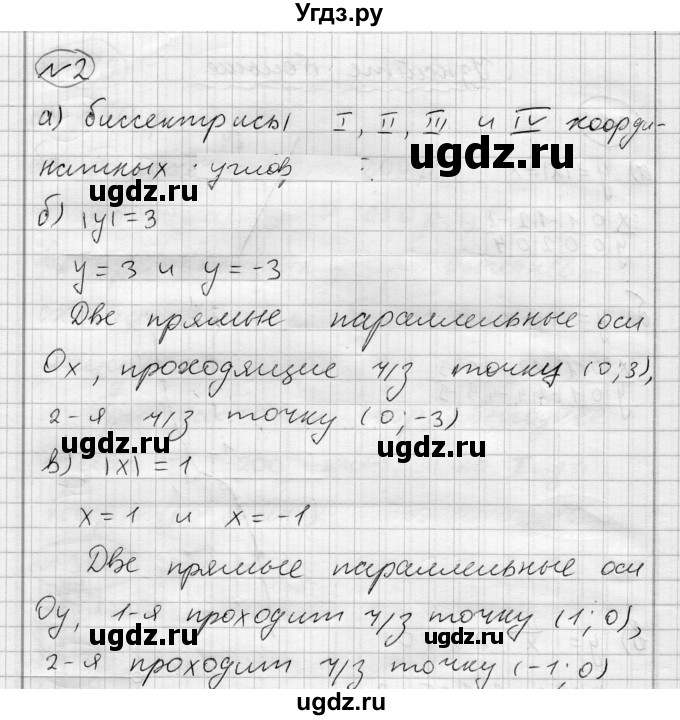 Угдз.ру
№2
а) биссектрисы I, II, III и IV коорди-
натных углов
ugdz.ru ugdz.ru
б) |y| = 3
y = 3 и y = -3
Две прямые параллельные оси
Ox, проходящие ч/з точку (0; 3),
2-я ч/з точку (0; -3)
ugdz.ru ugdz.ru
в) |x| = 1
x = 1 и x = -1
Две прямые параллельные оси
Oy, 1-я проходит ч/з точку (1; 0),
ugdz.ru ugdz.ru
2-я проходит ч/з точку (-1; 0)
ugdz.ru